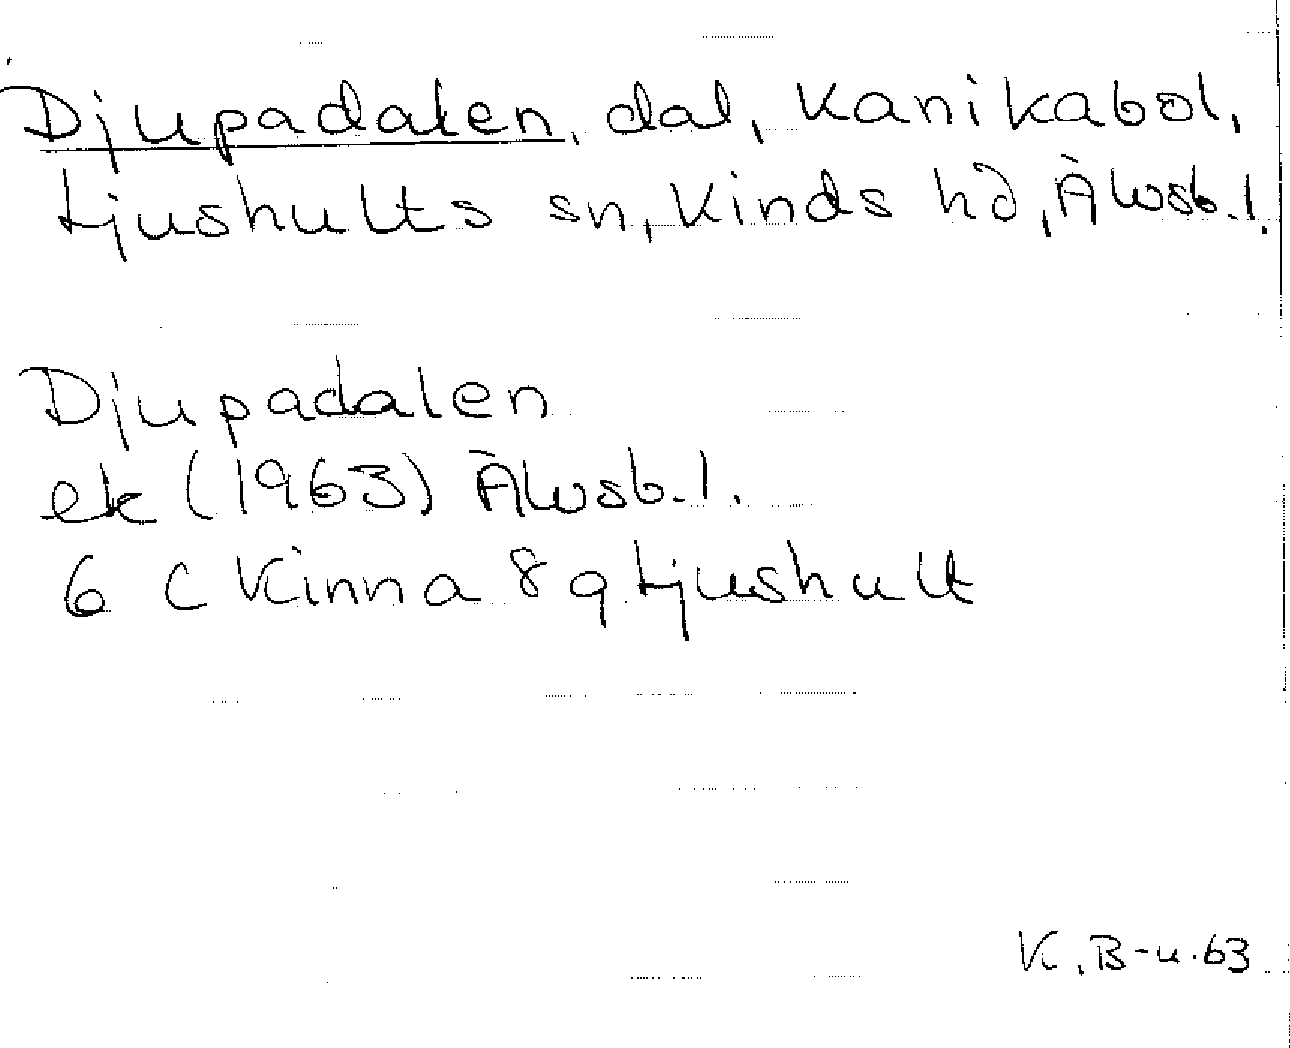 Djupadalen, dal, Kanikabol,
Ljushults sn, Kinds hd, Älvsb.l.
Djupadalen
ek (1963) Älvsb.l.
6 C Kinna 8 g Ljushult
K.B-n.63